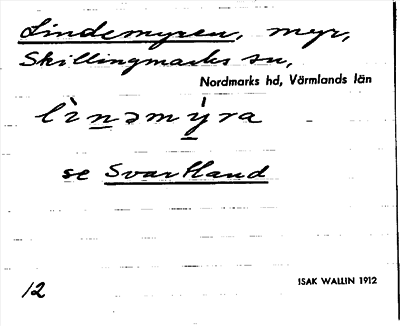 Lindemyren, myr,
Skillingmarks sn,
Nordmarks hd, Värmlands län
lìnəmýra
se Svartland
12
ISAK WALLIN 1912